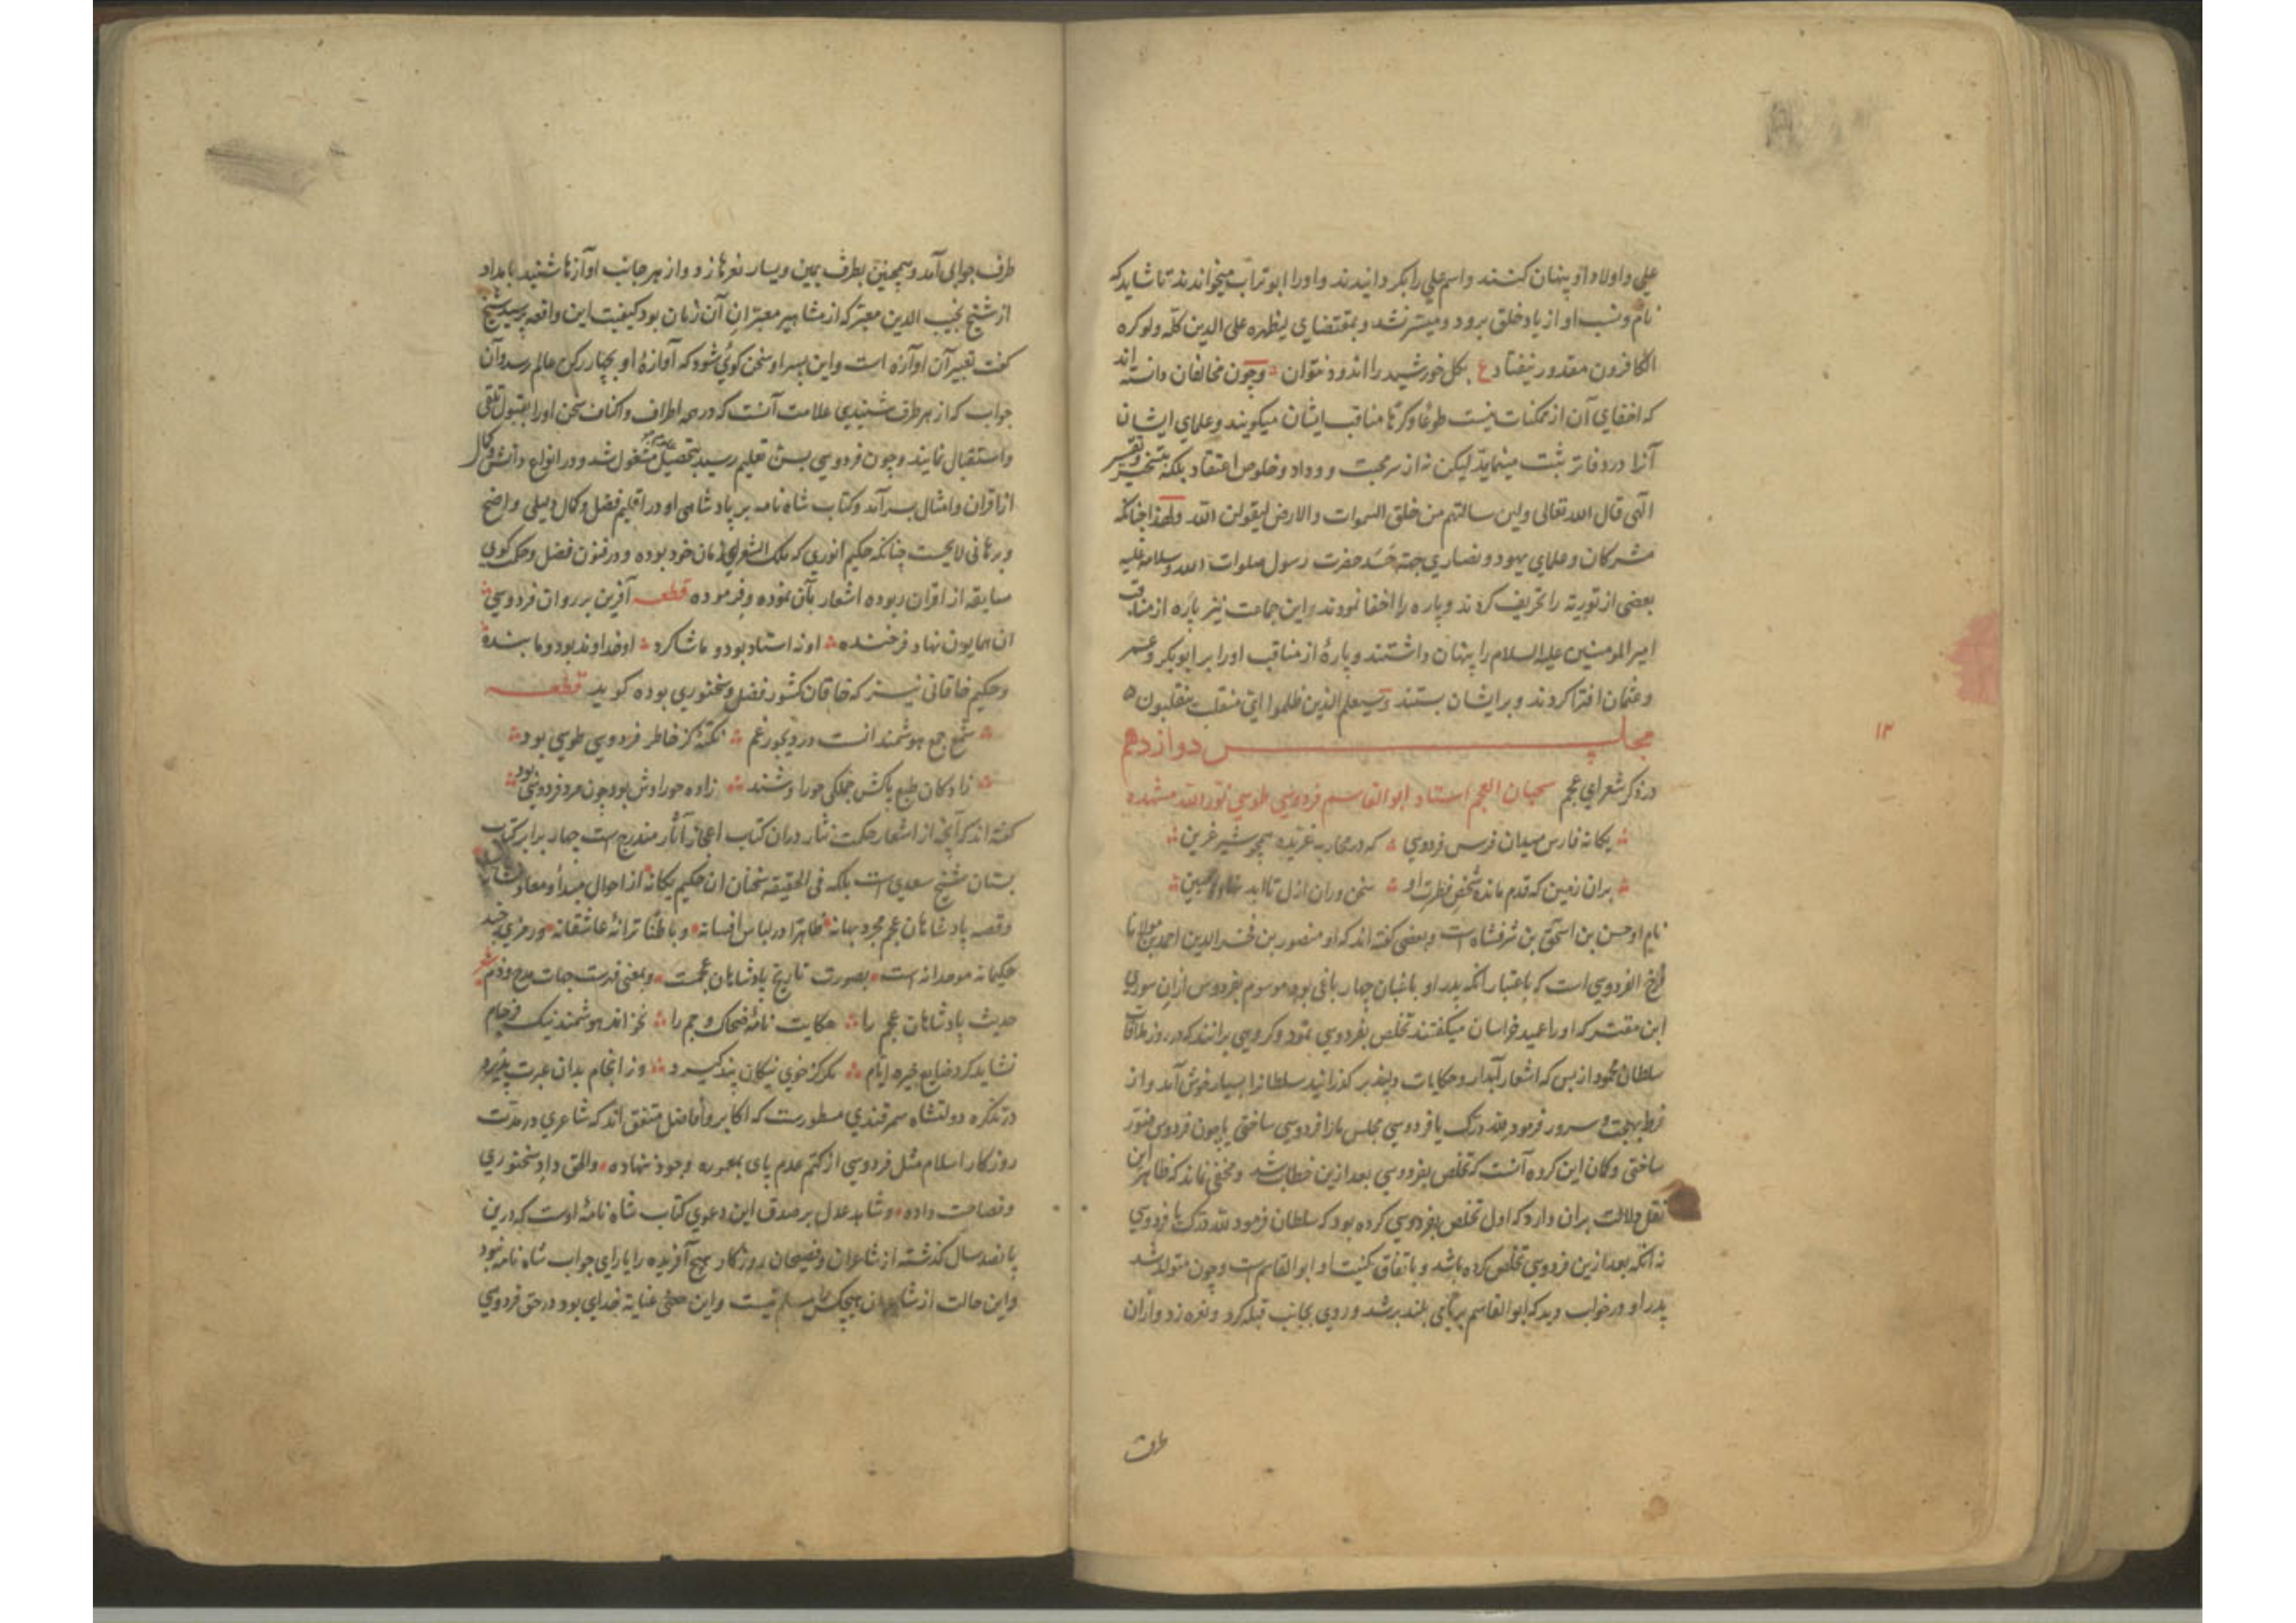 علی و اولاد او پنهان کنند و اسم علی را بکردانیدند و او را ابو تراب میخواندند تا شاید که
نام و نسب او از یاد خلق برود و میسر نشد و بمقتضای لیظهره علی الدین کله و لو کره
الکافرون مقدور نیفتاد ع بکل خورشید را اندود نتوان و چون مخالفان دانسته اند
که اخفای آن از ممکنات نیست طوعا و کرها مناقب ایشان میکویند و علمای ایشان
آنرا در دفاتر ثبت مینمایند لیکن نه از سر محبت و وداد و خلوص اعتقاد بلکه بتسخیر
الهی قال الله تعالی ولین سالتهم من خلق السموات والارض لیقولن الله ولهذا چنانکه
مشرکان و علمای یهود و نصاری جهة حسد حضرت رسول صلوات الله وسلامه علیه
بعضی از توریة را تحریف کردند و پاره را اخفا نمودند و این جماعت نیز پاره از مناقب
امیر المومنین علیه السلام را پنهان داشتند و پارهٔ از مناقب او را بر ابوبکر و عمر
و عثمان افترا کردند و بر ایشان بستند وسیعلم الذین ظلموا ای منقلب ینقلبون
مجلس دوازدهم
۱۲
در ذکر شعرای عجم سحبان العجم استاد ابو القاسم فردوسی طوسی نور الله مشهده
یکانه فارس میدان فرس فردوسی که در محاربه غریده همچو شیر غرین
بران زمین که قدم مانده شخص فطرت او سخن وران ازل تا ابد
نام او حسن بن اسحق بن شرفشاه است و بعضی کفته اند که او منصور بن فخر الدین احمد بن مولانا
فرخ الفردوسی است که باعتبار انکه پدر او باغبان چهار باغی بود موسوم بفردوس ازان سوری
ابن مقتر که او را عمید خراسان میکفتند تخلص بفردوسی نمود و کروهی برانند که در روز ملاقات
سلطان محمود از بس که اشعار آبدار و حکایات دلپذیر کذرانید سلطانرا بسیار خوش آمد و از
فرط بهجت و سرور فرمود لله درک یا فردوسی مجلس ما را فردوسی ساختی یا چون فردوس منور
ساختی و کان این کرده آنست که تخلص بفردوسی بعد ازین خطاب شد و مخفی نماند که ظاهر این
نقل دلالت بران دارد که اول تخلص بفردوسی کرده بود که سلطان فرمود لله درک یا فردوسی
نه انکه بعد ازین فردوسی تخلص کرده باشد و باتفاق کنیت او ابو القاسم است و چون متولد شد
پدر او در خواب دید که ابو القاسم بر بامی بلند برشد و روی بجانب قبله کرد و نعره زد و ازان
طرف
طرف جوابی آمد و همچنین بطرف یمین و یسار نعرها زد و از هر جانب اوازها شنید بامداد
از شیخ نجیب الدین معبر که از مشاهیر معبران آن زمان بود کیفیت این واقعه پرسید شیخ
کفت تعبیر آن آوازه است و این پسر او سخن کوئی شود که آوازهٔ او بچهار رکن عالم رسد و آن
جواب که از هر طرف شنیدی علامت آنست که در همه اطراف و اکناف سخن او را بقبول تلقی
و استقبال نمایند و چون فردوسی بسن تعلیم رسید بتحصیل مشغول شد و در انواع دانش و کمال
از اقران و امثال بسرآمد و کتاب شاه نامه بر پادشاهی او در اقلیم فضل و کمال دلیلی واضح
و برهانی لایحست چنانکه حکیم انوری که ملک الشعرای زمان خود بوده و در فنون فضل و حکمت کوی
مسابقه از اقران ربوده اشعار بآن نموده و فرموده قطعه آفرین بر روان فردوسی
ان همایون نهاد فرخنده او نه استاد بود و ما شاکرد او خداوند بود و ما بنده
و حکیم خاقانی نیز که خاقان کشور فضل و سخنوری بوده کوید قطعه
شمع جمع هوشمندانست در دیجور غم نکته کز خاطر فردوسی طوسی بود
زادکان طبع پاکش جملکی حورا وشند زاده حورا وش بود چون مرد فردوسی بود
کفته اند که آنچه از اشعار حکمت نثار دران کتاب اعجاز آثار مندرج است چهار برابر کتاب
بستان شیخ سعدی است بلکه فی الحقیقه سخنان ان حکیم یکانه از احوال مبدأ و معاد
و قصه پادشاهان عجم مجرد بهانه ظاهرا در لباس افسانه و باطنا ترانهٔ عاشقانه و رمزی چند
حکیمانه موحدانه است بصورت تاریخ پادشاهان عجمست و بمعنی فهرست جهات مدح و ذم شعر
حدیث پادشاهان عجم را حکایت نامهٔ ضحاک و جم را نخواند هوشمند نیک فرجام
نشاید کرد ضایع خیره ایام مکر کز خوی نیکان پند کیرد وز انجام بدان عبرت پذیرد
در تذکره دولتشاه سمرقندی مسطورست که اکابر و افاضل متفق اند که شاعری در مدت
روزکار اسلام مثل فردوسی از کتم عدم پای بمعموره وجود ننهاده والحق داد سخنوری
و فصاحت داده و شاهد عدل بر صدق این دعوی کتاب شاه نامهٔ اوست که درین
پانصد سال کذشته از شاعران و فصیحان روزکار هیچ آفریده را یارای جواب شاه نامه نبود
و این حالت از شاعران هیچکس را مسلم نیست و این معنی عنایة خدای بود در حق فردوسی